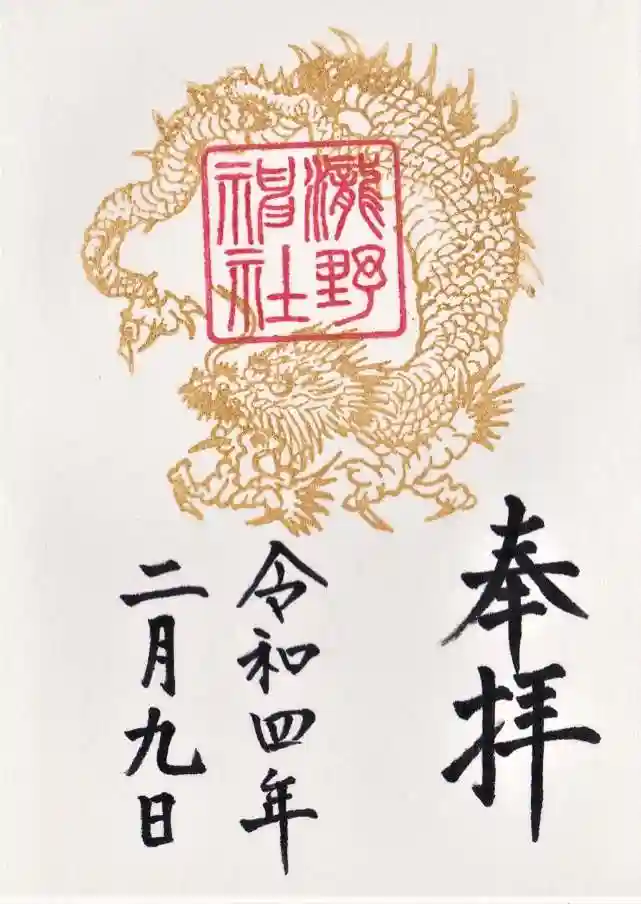 瀧野
神社
奉拝
令和四年
二月九日